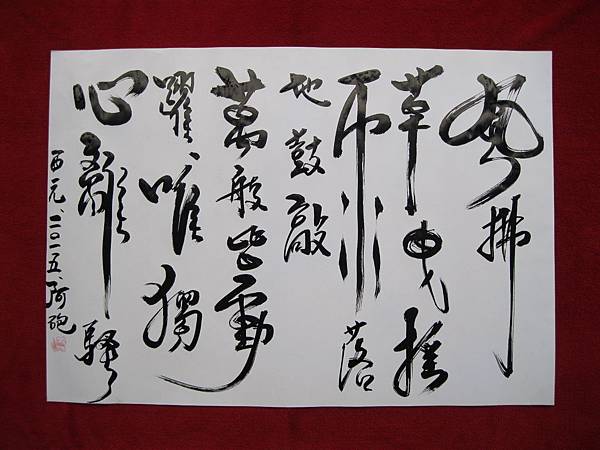 風拂
草曳搖
雨落
地鼓敲
萬般皆動
躍唯獨
心難騷
西元、二〇一五、阿砲